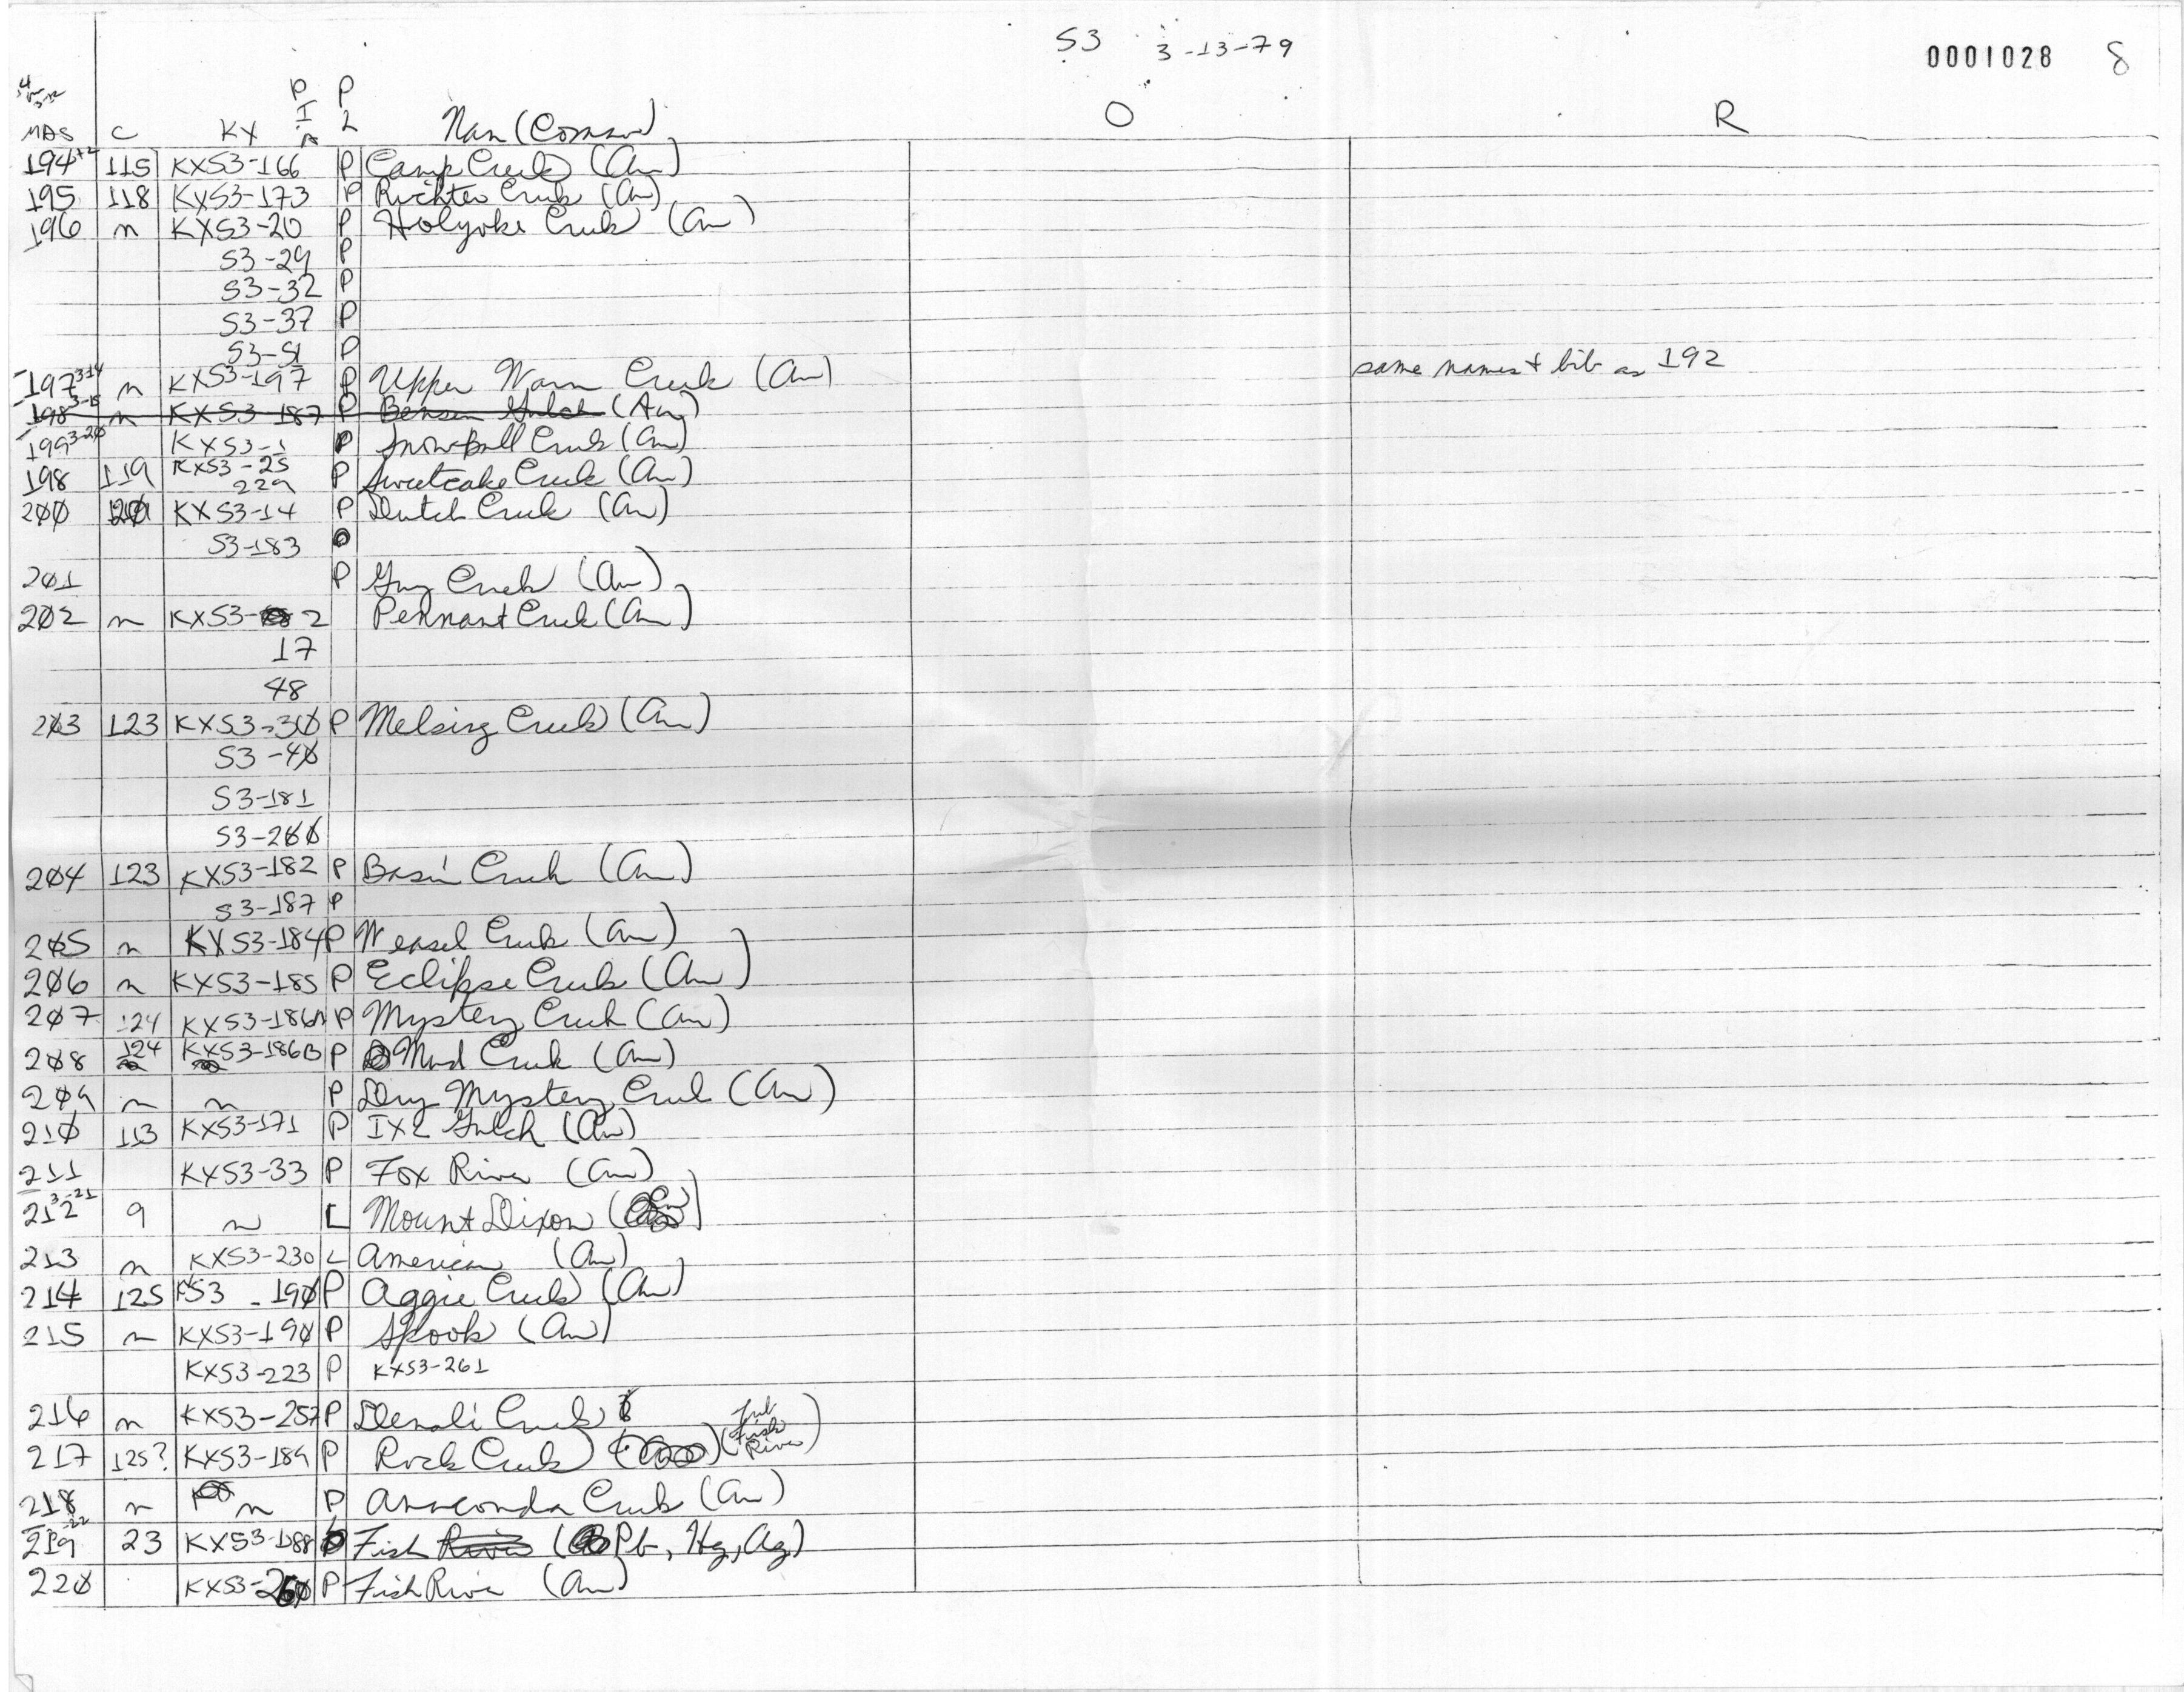 S3 3-13-79
0001028 8
P P
I L
MAS C KX Nam (Comm) O R
194 115 KXS3-166 P Camp Creek (Au)
195 118 KXS3-173 P Richter Creek (Au)
196 n KXS3-20 P Holyoke Creek (Au)
S3-29 P
S3-32 P
S3-37 P
S3-51 P
197 3-14 n KXS3-197 P Upper Warm Creek (Au) same names + bib as 192
198 3-15 n KXS3-187 P Benson Gulch (Au)
199 3-20 KXS3-1 P Snowball Creek (Au)
198 119 KXS3-25 P Sweetcake Creek (Au)
229
2ØØ KXS3-14 P Dutch Creek (Au)
S3-183
2Ø1 P Creek (Au)
2Ø2 n KXS3-2 Pennant Creek (Au)
17
48
2Ø3 123 KXS3-3Ø P Melsing Creek (Au)
S3-4Ø
S3-181
S3-2ØØ
2Ø4 123 KXS3-182 P Basin Creek (Au)
S3-187 P
2Ø5 n KXS3-184 P Weasel Creek (Au)
2Ø6 n KXS3-185 P Eclipse Creek (Au)
2Ø7 124 KXS3-186A P Mystery Creek (Au)
2Ø8 124 KXS3-186B P Mud Creek (Au)
2Ø9 n n P Dry Mystery Creek (Au)
21Ø 113 KXS3-171 P IXL Gulch (Au)
211 KXS3-33 P Fox River (Au)
212 3-21 9 n L Mount Dixon
213 n KXS3-230 L American (Au)
214 125 S3-19Ø P Aggie Creek (Au)
215 n KXS3-19Ø P Spook (Au)
KXS3-223 P KXS3-261
216 n KXS3-257 P Denali Creek
217 125? KXS3-189 P Rock Creek (Fish River)
218 n n P Anaconda Creek (Au)
219 23 KXS3-188 Fish River (Pb, Hg, Ag)
22Ø KXS3-26Ø P Fish River (Au)